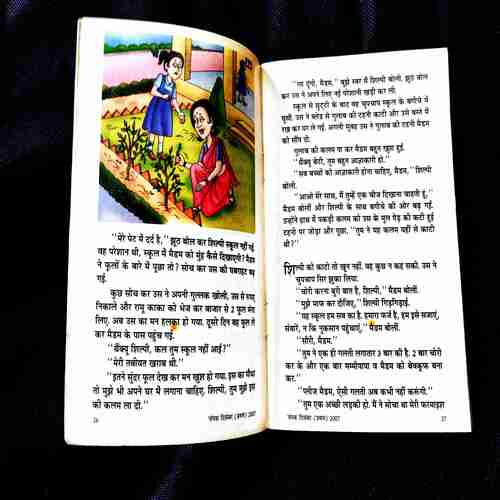 "मेरे पेट में दर्द है," झूठ बोल कर शिल्पी स्कूल नहीं गई.
वह परेशान थी, स्कूल में मैडम को मुंह कैसे दिखाएगी? मैडम
ने फूलों के बारे में पूछा तो? सोच कर उस की घबराहट बढ़
गई.
कुछ सोच कर उस ने अपनी गुल्लक खोली, उस से रुपए
निकाले और रामू काका को भेज कर बाजार से 2 फूल मंगा
लिए. अब उस का मन हलका हो गया. दूसरे दिन वह फूल ले
कर मैडम के पास पहुंच गई.
"थैंक्यू शिल्पी, कल तुम स्कूल नहीं आई?"
"मेरी तबीयत खराब थी."
"इतने सुंदर फूल देख कर मन खुश हो गया. इस का पौधा
तो मुझे भी अपने घर में लगाना चाहिए. शिल्पी, तुम मुझे इस
की कलम ला दो."
26
चंपक दिसंबर (प्रथम) 2007
"ला दूंगी, मैडम," बुझे स्वर में शिल्पी बोली. झूठ बोल
कर उस ने अपने लिए नई परेशानी खड़ी कर ली.
स्कूल से छुट्टी के बाद वह चुपचाप स्कूल के बगीचे में
घुसी. उस ने ब्लेड से गुलाब की टहनी काटी और उसे बस्ते में
रख कर घर ले गई. अगली सुबह उस ने गुलाब की टहनी मैडम
को सौंप दी.
गुलाब की कलम पा कर मैडम बहुत खुश हुईं.
"थैंक्यू बेटी, तुम बहुत आज्ञाकारी हो."
"सब बच्चों को आज्ञाकारी होना चाहिए, मैडम," शिल्पी
बोली.
"आओ मेरे साथ, मैं तुम्हें एक चीज दिखाना चाहती हूं,"
मैडम बोलीं और शिल्पी के साथ बगीचे की ओर बढ़ गईं.
उन्होंने हाथ में पकड़ी कलम को उस के मूल पेड़ की कटी हुई
टहनी पर जोड़ा और पूछा, "तुम ने यह कलम यहीं से काटी
थी?"
शिल्पी को काटो तो खून नहीं. वह कुछ न कह सकी. उस ने
चुपचाप सिर झुका लिया.
"चोरी करना बुरी बात है, शिल्पी," मैडम बोलीं.
"मुझे माफ कर दीजिए," शिल्पी गिड़गिड़ाई.
"यह स्कूल हम सब का है. हमारा फर्ज है, हम इसे सजाएं,
संवारें, न कि नुकसान पहुंचाएं," मैडम बोलीं.
"सौरी, मैडम."
"तुम ने एक ही गलती लगातार 3 बार की है. 2 बार चोरी
कर के और एक बार मम्मीपापा व मैडम को बेवकूफ बना
कर."
"प्लीज मैडम, ऐसी गलती अब कभी नहीं करूंगी."
"तुम एक अच्छी लड़की हो. मैं ने सोचा था मेरी फरमाइश
चंपक दिसंबर (प्रथम) 2007
27